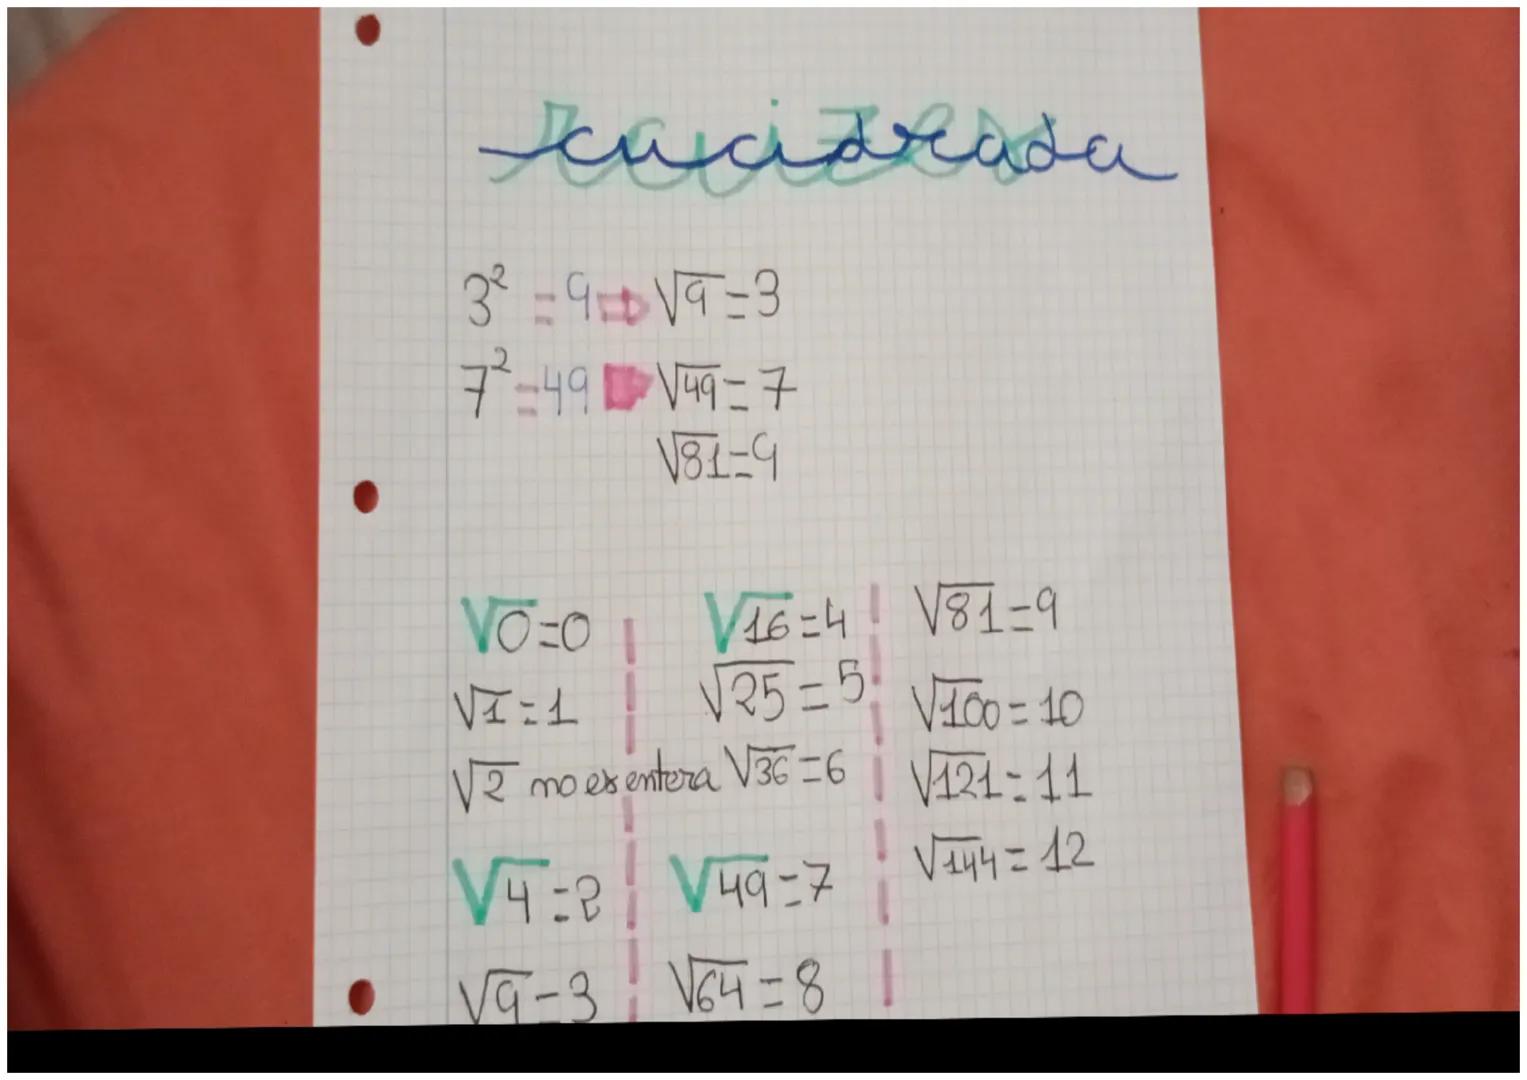 raíz
cuadrada
3² = 9 ⇒ √9 = 3
7² = 49 ⇒ √49 = 7
√81 = 9
√0 = 0
√1 = 1
√2 no es entera
√4 = 2
√9 = 3
√16 = 4
√25 = 5
√36 = 6
√49 = 7
√64 = 8
√81 = 9
√100 = 10
√121 = 11
√144 = 12